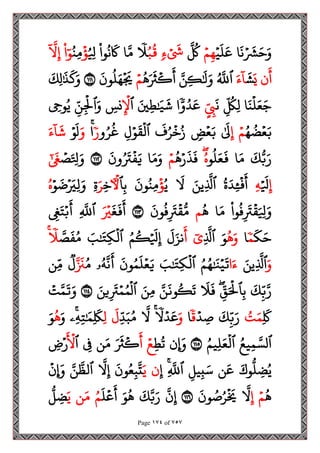 وَحَشَرْنَا عَلَيْهِمْ كُلَّ شَيْءٍ قُبُلًا مَّا كَانُوا۟ لِيُؤْمِنُوٓا۟ إِلَّآ
أَن يَشَآءَ ٱللَّهُ وَلَٰكِنَّ أَكْثَرَهُمْ يَجْهَلُونَ ١١١ وَكَذَٰلِكَ
جَعَلْنَا لِكُلِّ نَبِيٍّ عَدُوًّا شَيَٰطِينَ ٱلْإِنسِ وَٱلْجِنِّ يُوحِي
بَعْضُهُمْ إِلَىٰ بَعْضٍ زُخْرُفَ ٱلْقَوْلِ غُرُورًا ۚ وَلَوْ شَآءَ
رَبُّكَ مَا فَعَلُوهُ ۖ فَذَرْهُمْ وَمَا يَفْتَرُونَ ١١٢ وَلِتَصْغَىٰٓ
إِلَيْهِ أَفْـِٔدَةُ ٱلَّذِينَ لَا يُؤْمِنُونَ بِٱلْأَخِرَةِ وَلِيَرْضَوْهُ
وَلِيَقْتَرِفُوا۟ مَا هُم مُّقْتَرِفُونَ ١١٣ أَفَغَيْرَ ٱللَّهِ أَبْتَغِي
حَكَمًا وَهُوَ ٱلَّذِيٓ أَنزَلَ إِلَيْكُمُ ٱلْكِتَٰبَ مُفَصَّلًا ۚ
وَٱلَّذِينَ ءَاتَيْنَٰهُمُ ٱلْكِتَٰبَ يَعْلَمُونَ أَنَّهُۥ مُنزَلٌ مِّن
رَّبِّكَ بِٱلْحَقِّ ۖ فَلَا تَكُونَنَّ مِنَ ٱلْمُمْتَرِينَ ١١٤ وَتَمَّتْ
كَلِمَتُ رَبِّكَ صِدْقًا وَعَدْلًا ۚ لَّا مُبَدِّلَ لِكَلِمَٰتِهِۦ ۚ وَهُوَ
ٱلسَّمِيعُ ٱلْعَلِيمُ ١١٥ وَإِن تُطِعْ أَكْثَرَ مَن فِي ٱلْأَرْضِ
يُضِلُّوكَ عَن سَبِيلِ ٱللَّهِ ۚ إِن يَتَّبِعُونَ إِلَّا ٱلظَّنَّ وَإِنْ
هُمْ إِلَّا يَخْرُصُونَ ١١٦ إِنَّ رَبَّكَ هُوَ أَعْلَمُ مَن يَضِلُّ
Page ١٧٤ of ٧٥٧